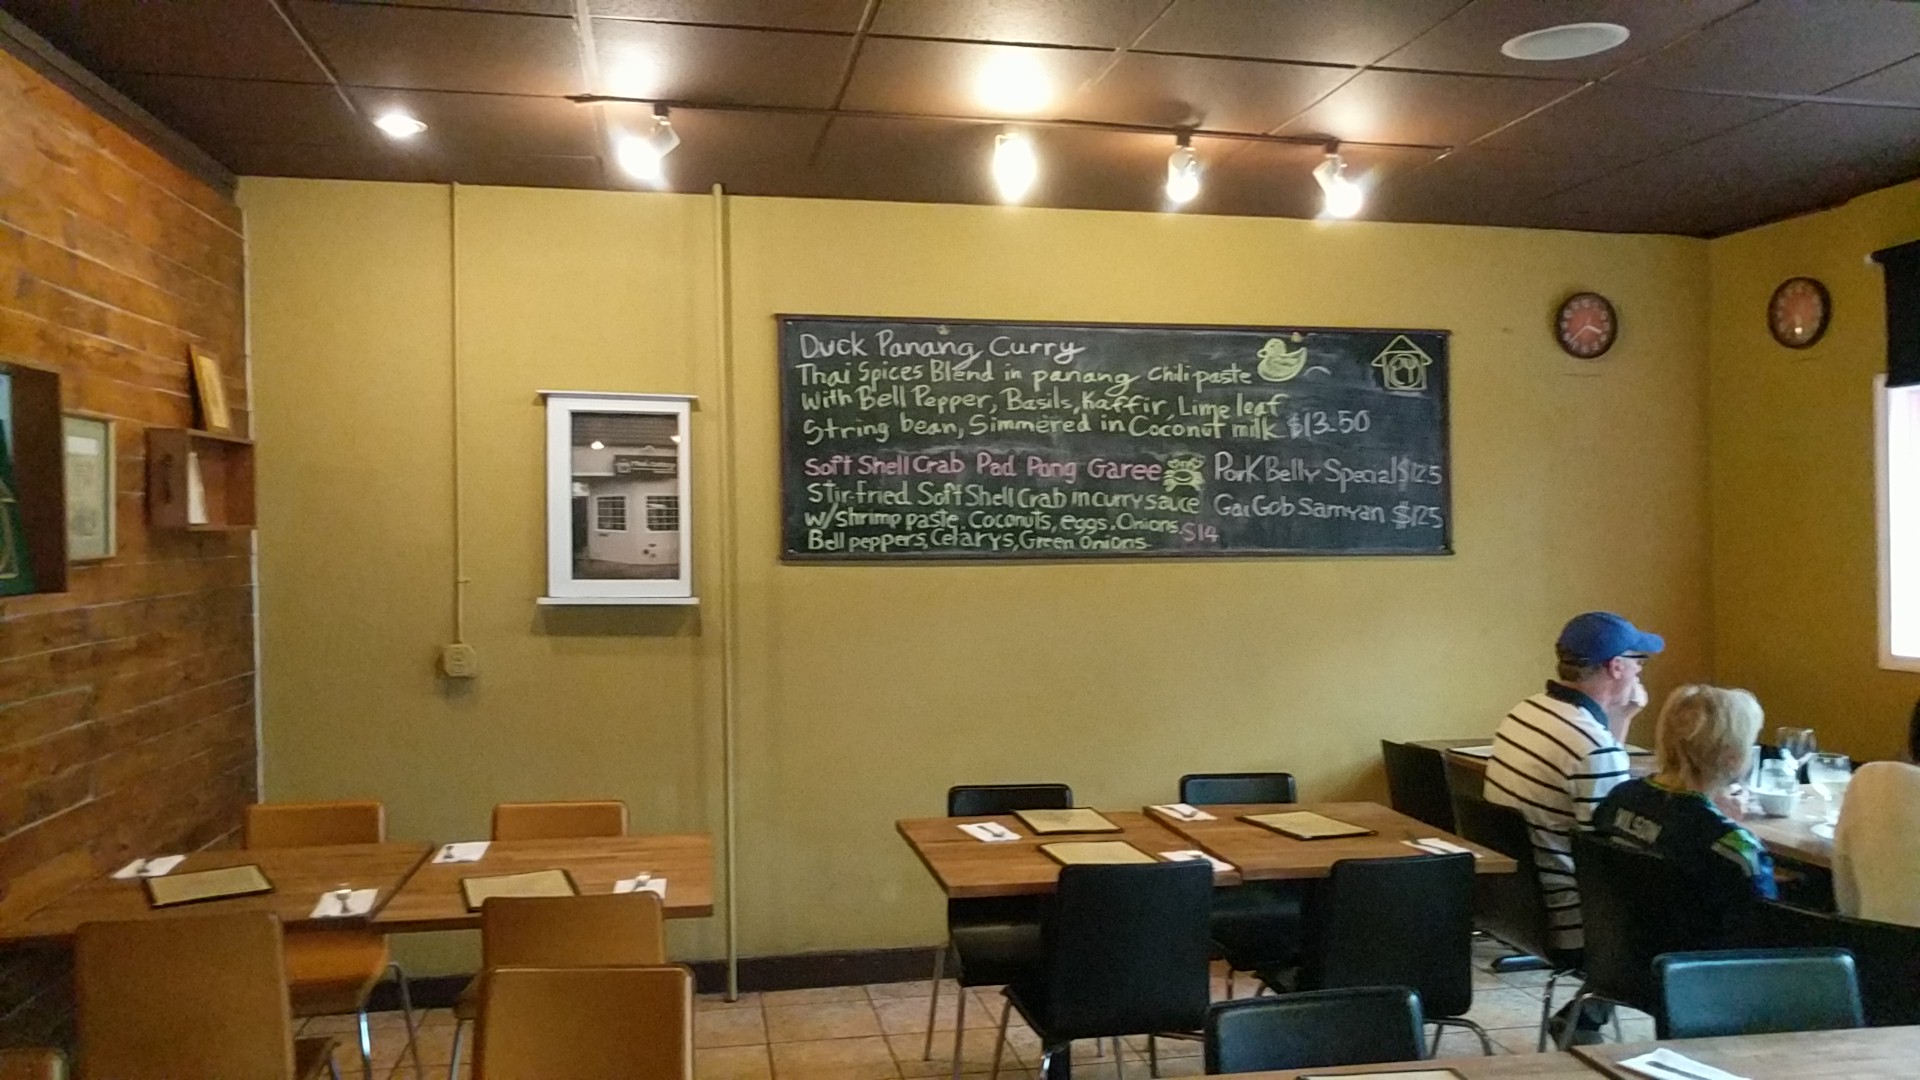 Duck Panang Curry
Thai Spices Blend in panang chili paste
with Bell Pepper, Basils, Kaffir, Lime leaf
String bean, Simmered in Coconut milk $13.50
Soft Shell Crab Pad Pong Garee
Stir-fried Soft Shell Crab in curry sauce
w/Shrimp paste, Coconuts, eggs, Onions,
Bell peppers, Celarys, Green Onions $14
Pork Belly Special $12.5
Gai Gob Samyan $12.5
WILSON